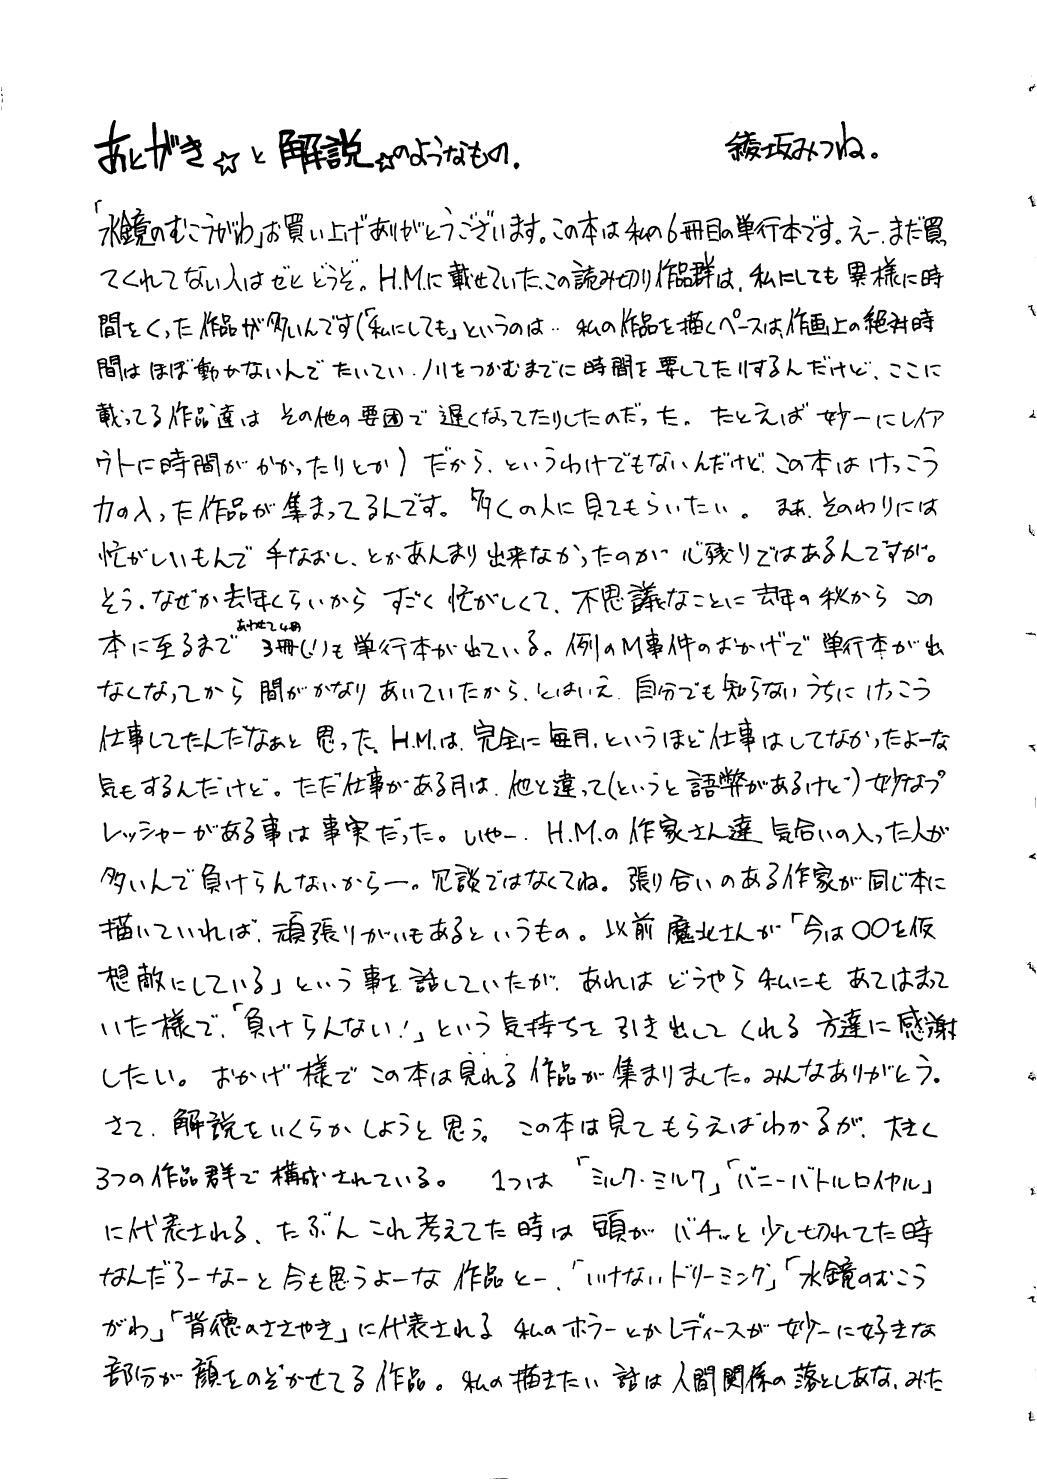 あとがき☆と解説☆のようなもの。 綾坂みつね。
「水鏡のむこうがわ」お買い上げありがとうございます。この本は私の6冊目の単行本です。えー、まだ買っ
てくれてない人はぜひどうぞ。H.M.に載せていた、この読み切り作品群は、私にしても異様に時
間をくった作品が多いんです(「私にしても」というのは‥私の作品を描くペースは、作画上の絶対時
間はほぼ動かないんでたいてい、ノリをつかむまでに時間を要してたりするんだけど、ここに
載ってる作品達はその他の要因で遅くなってたりしたのだった。たとえば妙ーにレイア
ウトに時間がかかったりとか)だから、というわけでもないんだけど、この本はけっこう
力の入った作品が集まってるんです。多くの人に見てもらいたい。まあ、そのわりには
忙がしいもんで手なおし、とかあんまり出来なかったのが心残りではあるんですが。
そう、なぜか去年くらいからすごく忙がしくて、不思議なことに去年の秋からこの
本に至るまで あわせて4冊 3冊(!)も単行本が出ている。例のM事件のおかげで単行本が出
なくなってから間がかなりあいていたから、とはいえ、自分でも知らないうちにけっこう
仕事してたんだなぁと思った、H.M.は、完全に毎月、というほど仕事はしてなかったよーな
気もするんだけど。ただ仕事がある月は、他と違って(というと語弊があるけど)妙なプ
レッシャーがある事は事実だった。いやー、H.M.の作家さん達気合いの入った人が
多いんで負けらんないからー。冗談ではなくてね。張り合いのある作家が同じ本に
描いていれば、頑張りがいもあるというもの。以前魔北さんが「今は〇〇を仮
想敵にしている」という事を話していたが、あれはどうやら私にもあてはまって
いた様で、「負けらんない!」という気持ちを引き出してくれる方達に感謝
したい。おかげ様でこの本は見れる作品が集まりました。みんなありがとう。
さて、解説をいくらかしようと思う。この本は見てもらえばわかるが、大きく
3つの作品群で構成されている。1つは「ミルク・ミルク」「バニーバトルロイヤル」
に代表される、たぶんこれ考えてた時は頭がバチッと少し切れてた時
なんだろーなーと今も思うよーな作品とー、「いけないドリーミング」「水鏡のむこう
がわ」「背徳のささやき」に代表される私のホラーとかレディースが妙ーに好きな
部分が顔をのぞかせてる作品。私の描きたい話は人間関係の落としあな、みた